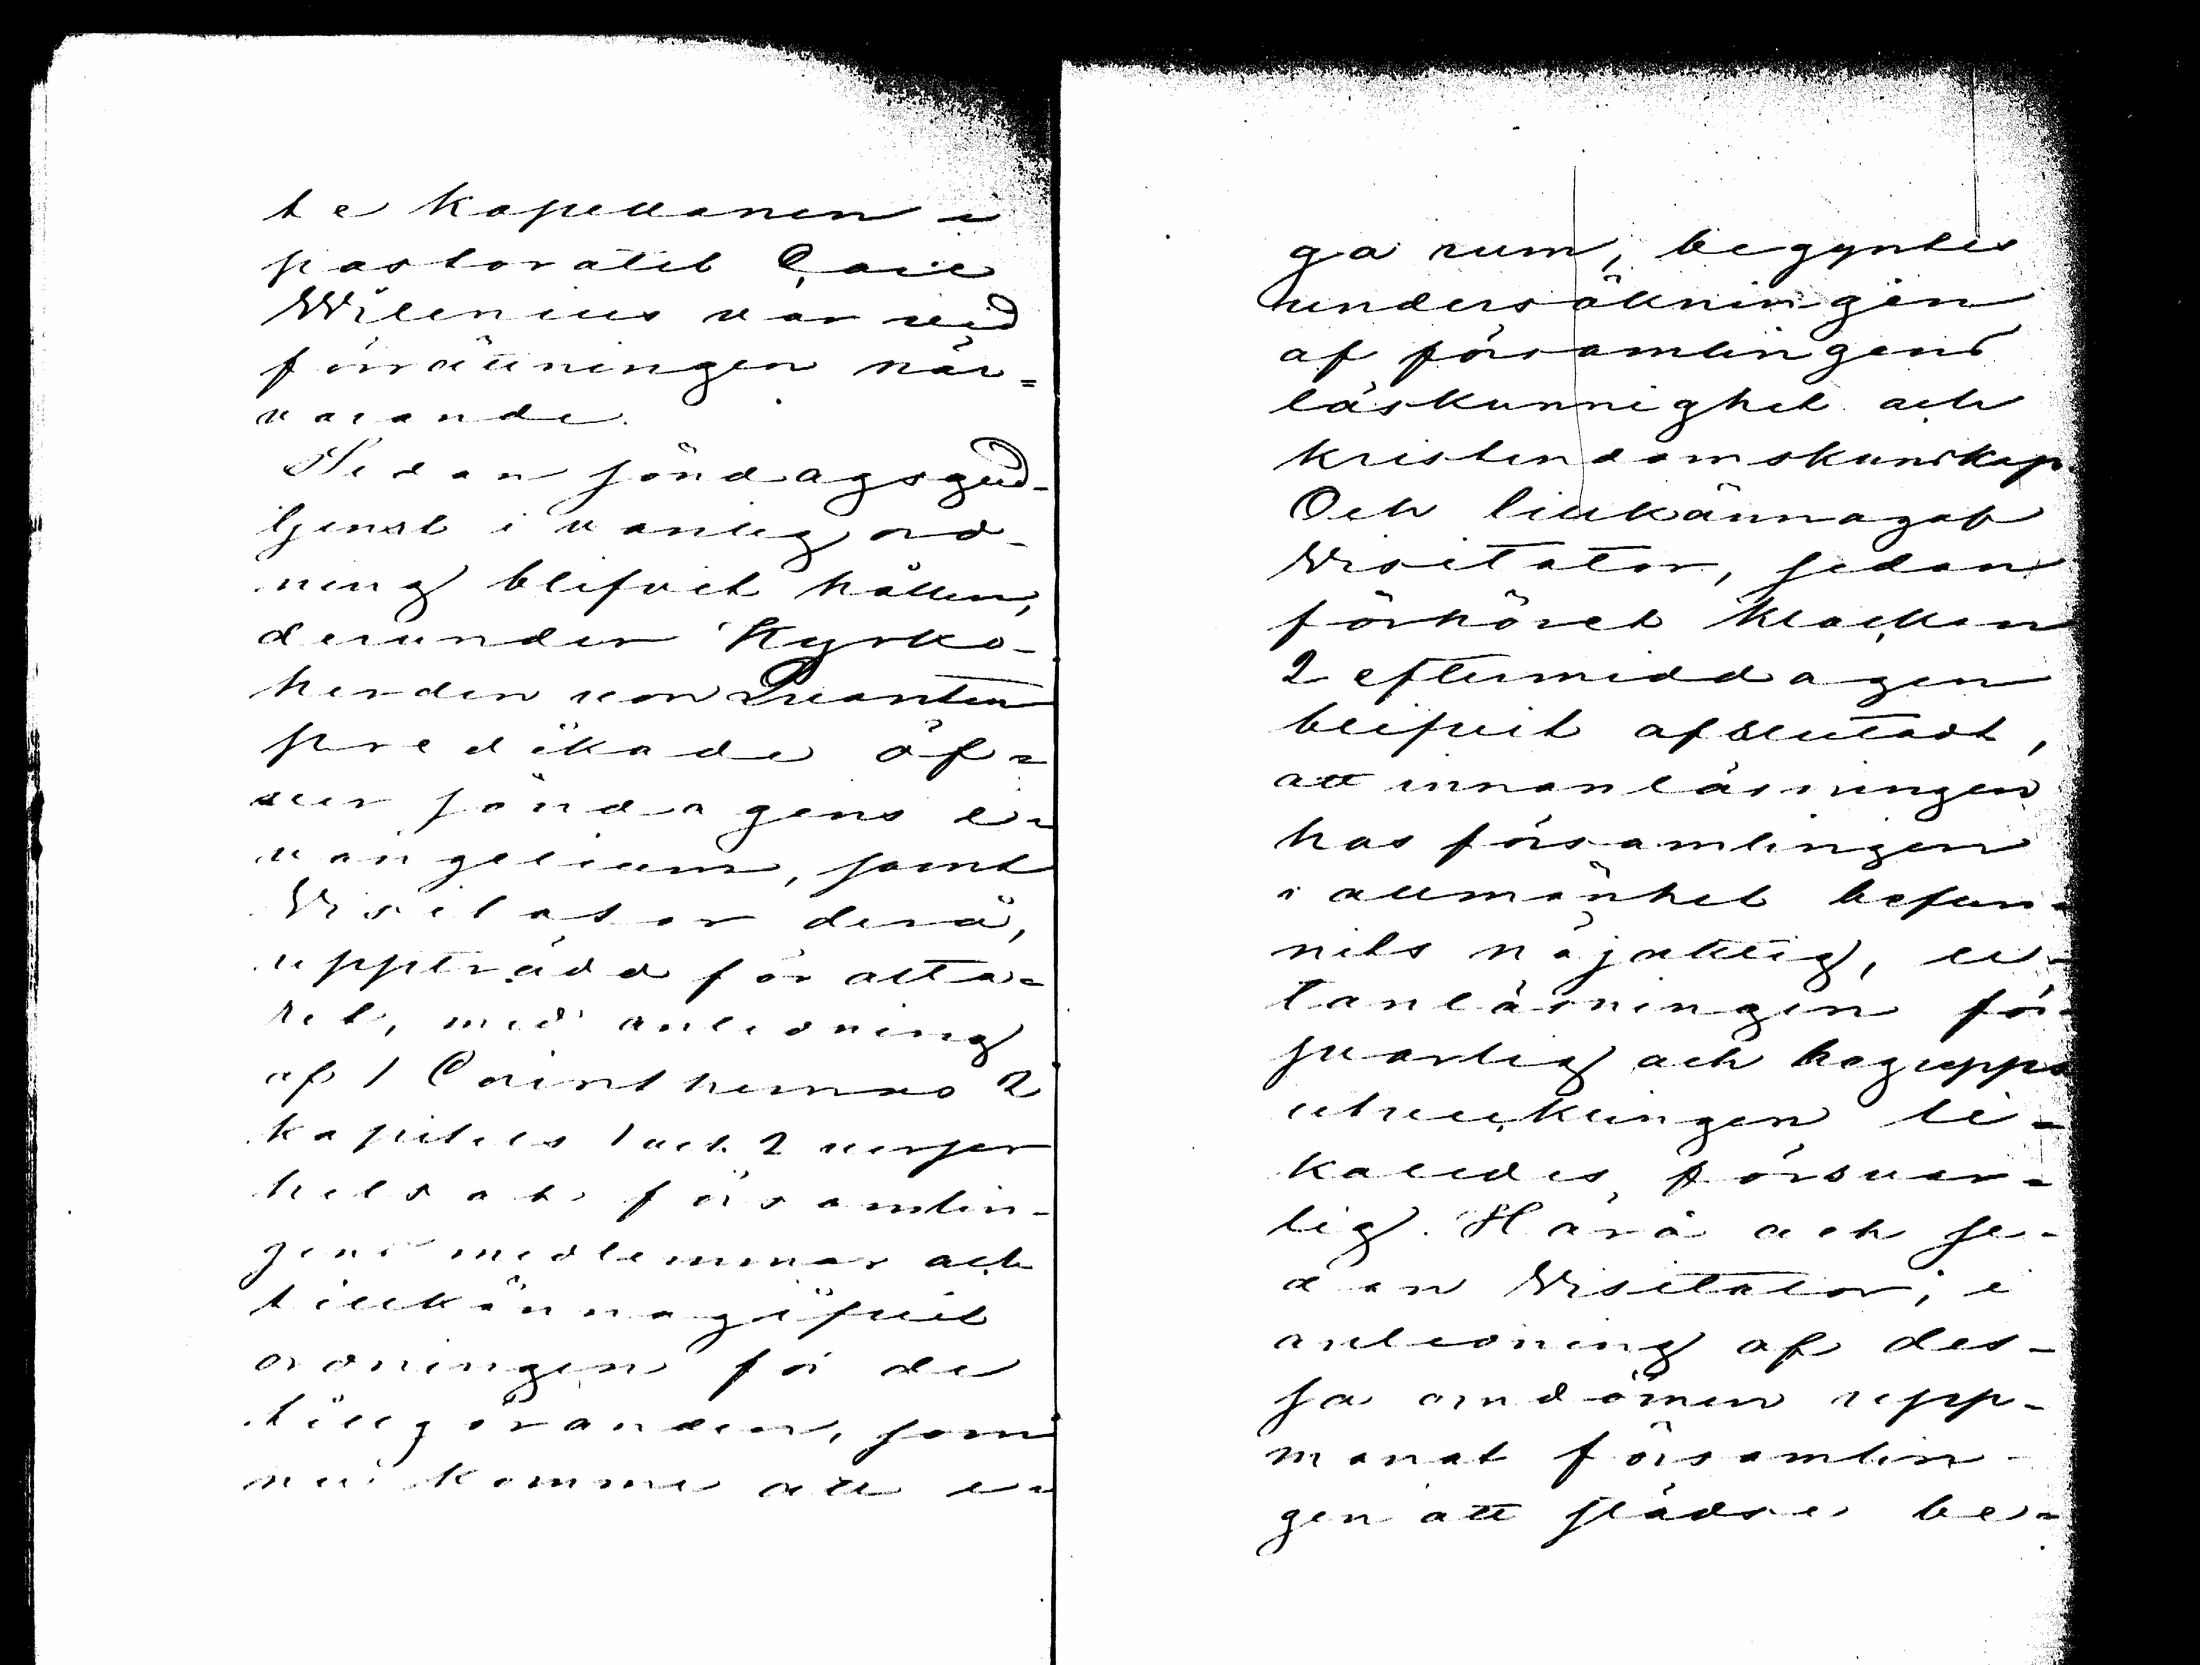 te kapellanen i
pastoratet Carl
Wilenius var vid
förrättningen när=
varande.
Sedan söndagsgud-
tjenst i vanlig ord-
ning blifvit hållen,
derunder Kyrko-
herden von Quanten
predikade öf-
ver söndagens e-
vangelium, samt
Visitator derå,
uppträdd för alta-
ret, med anledning
af 1 Corinthernes 2
kapitels 1 och 2 verser
helsat församlin-
gens medlemmar och
tillkännagifvit
ordningen för de
tillgöranden, som
nu komme att e-
ga rum, begyntes
undersökningen
af församlingens
läskunnighet och
kristendomskunskap.
Och tillkännagaf
Visitator, sedan
förhöret klockan
2 eftermiddagen
blifvit afslutadt,
att innanläsningen
hos församlingen
i allmänhet befun-
nits nöjaktig, u-
tanläsningen för-
svarlig och begrepps
utvecklingen li-
kaledes försvar-
lig. Härå och se-
dan Visitator, i
anledning af des-
sa omdömen upp-
manat församlin-
gen att städse be-